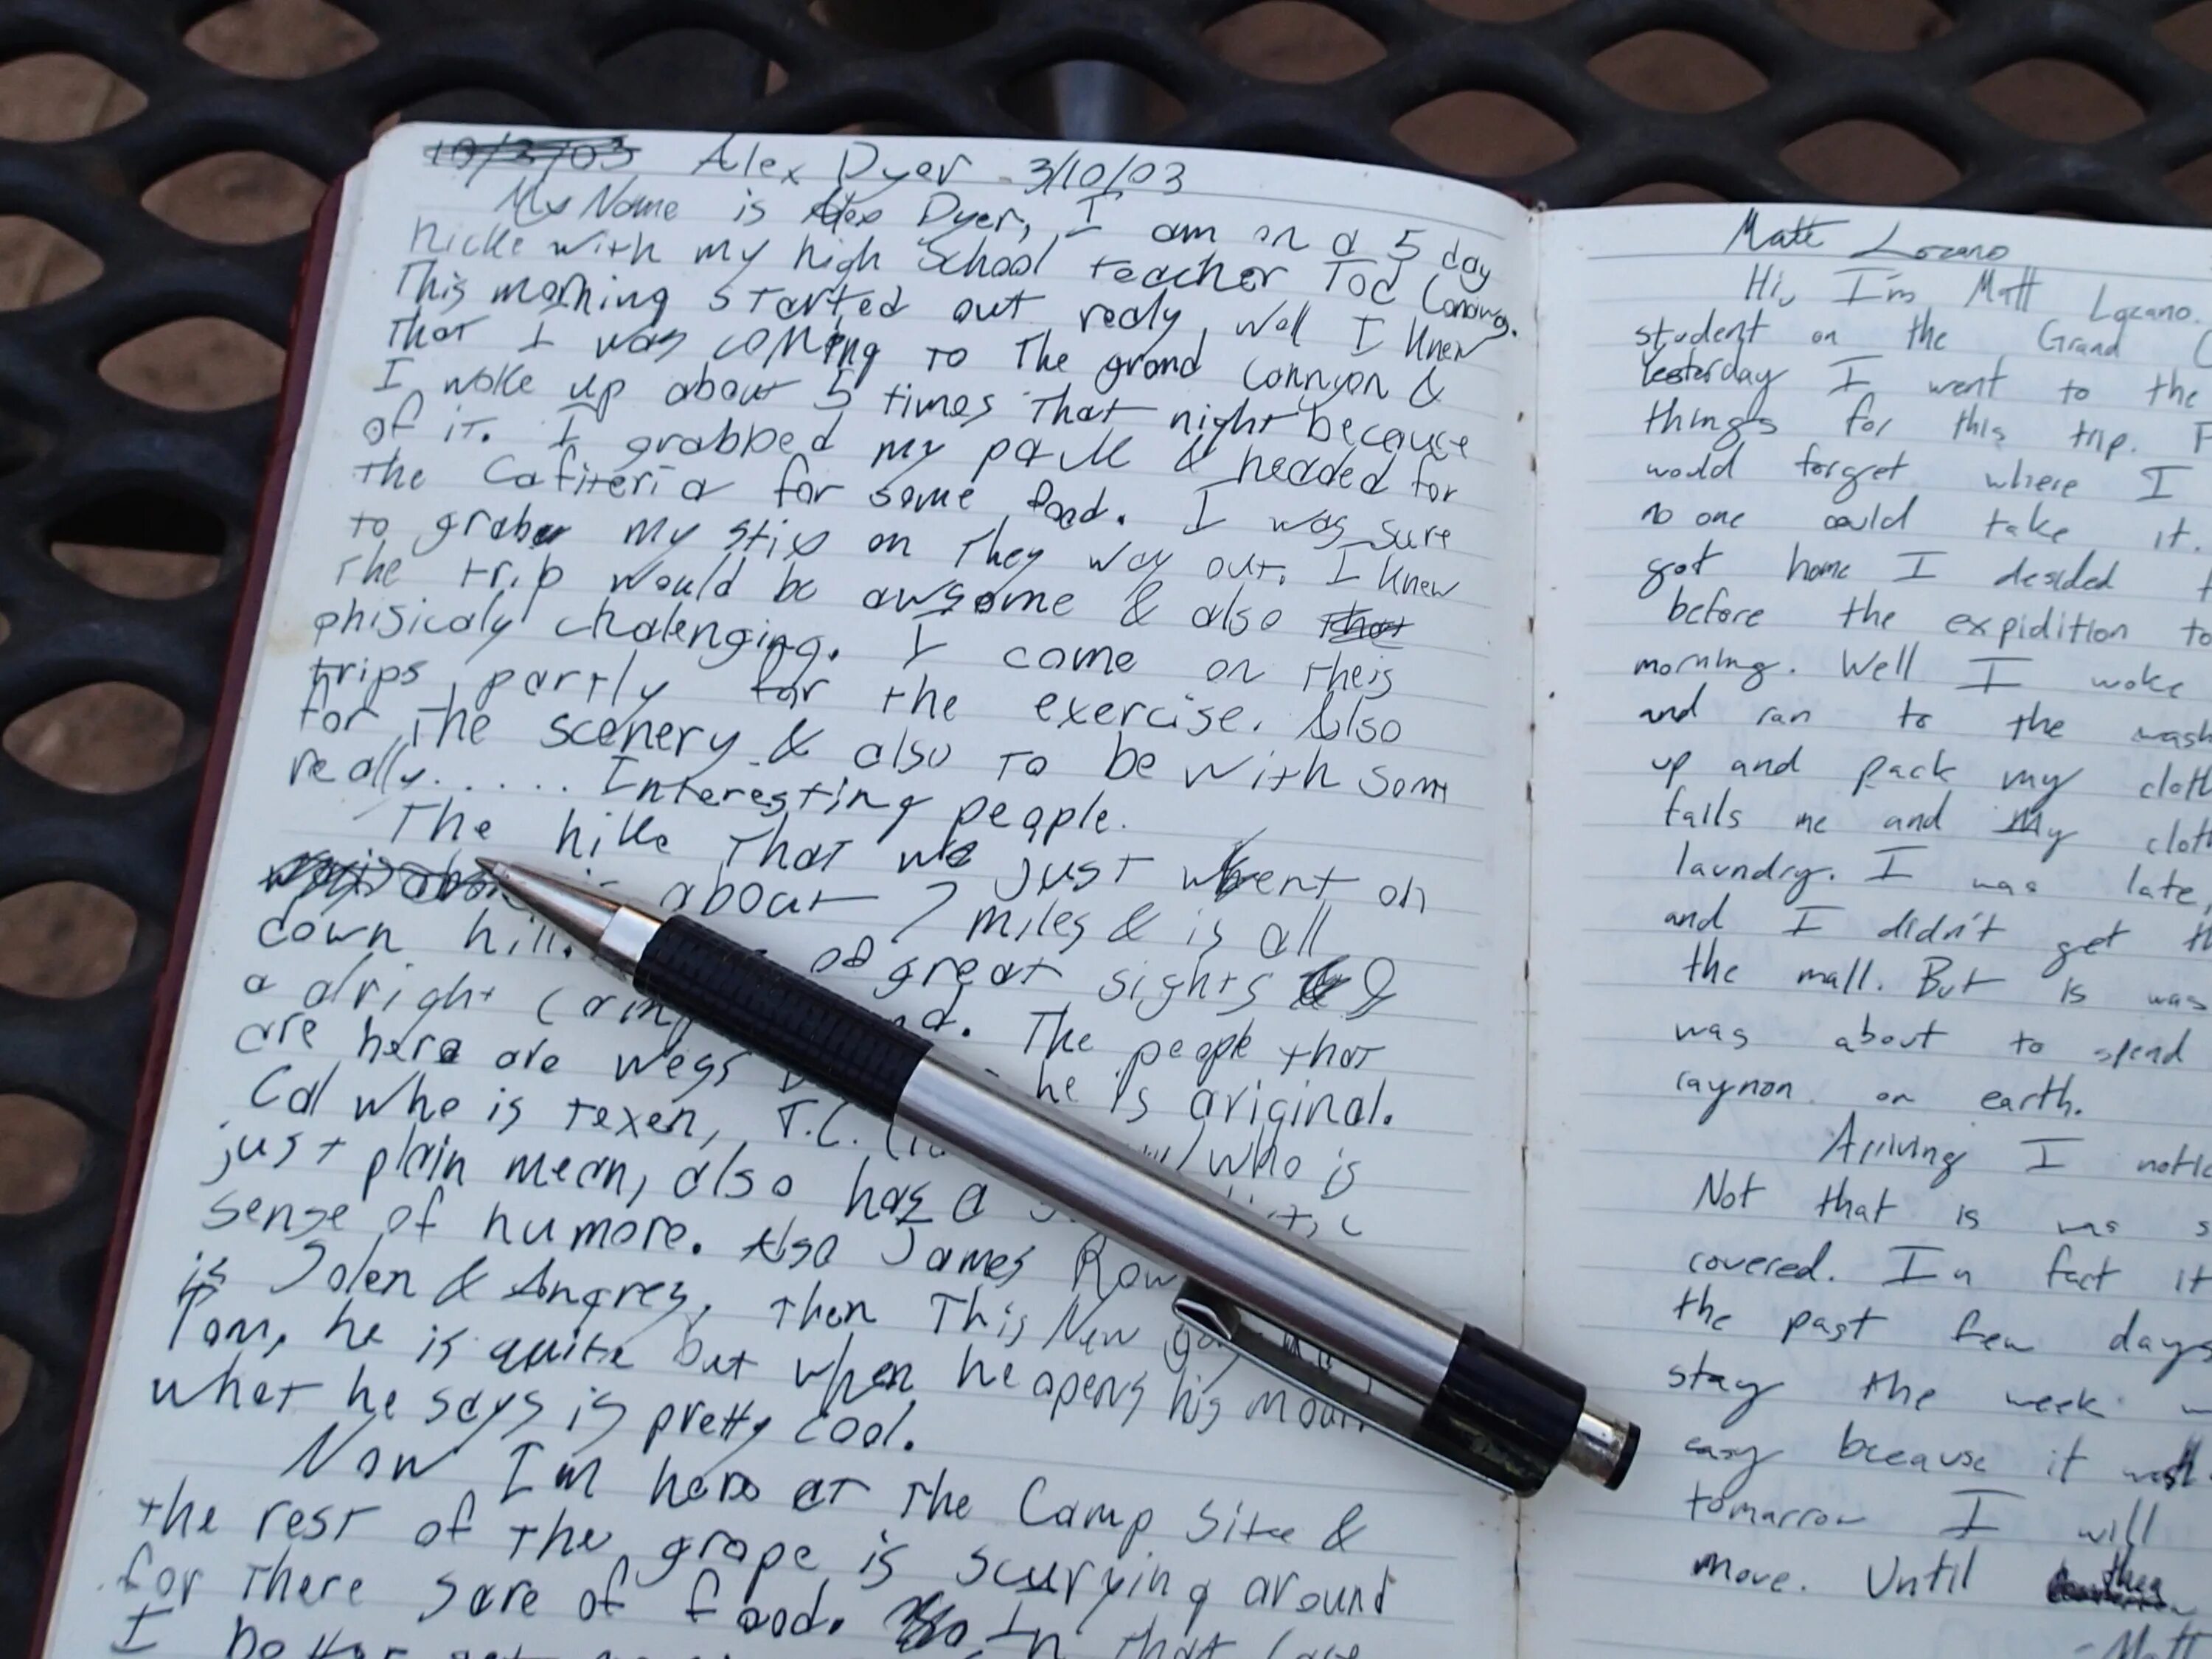 10/3/03 Alex Dyer 3/10/03
My Name is Alex Dyer, I am on a 5 day
hicke with my high School teacher Tod
This morning started out realy well I knew
that I was coming to The grand Connyon &
I woke up about 5 times that night because
of it. I grabbed my pack & headed for
the Cafiteria for some food. I was sure
to grab my stix on they way out. I knew
the trip would be awsome & also that
phisicaly chalenging. I come on theis
trips partly for the exercise. Also
for the scenery & also to be with som
really...... Interesting people.
The hike that we just went on
about 7 miles & is all
down hill. of great sights &
a alright The people that
are here are wess he is original.
Cal who is texen, T.C. who is
just plain mean, also has a
sense of humore. Also James Row
is Jolen & Angrey, then This New guy
Tom, he is quite but when he opens his mouth
what he says is pretty cool.
Now I'm here at the Camp Site &
the rest of the grope is scurrying around
for there sore of food. In that case
I better get
Matt Lozano
Hi, I'm Matt Lozano.
student on the Grand
Yesterday I went to the
things for this trip.
would forget where I
no one could take it.
got home I desided
before the expidition to
morning. Well I woke
and ran to the wash
up and pack my cloth
falls me and my cloth
laundry. I was late,
and I didn't get th
the mall. But is was
was about to spend
caynon on earth.
Arriving I notic
Not that is was s
covered. In fact it
the past few days
stay the week w
easy because it was
tomarrow I will
move. Until then
-Matt